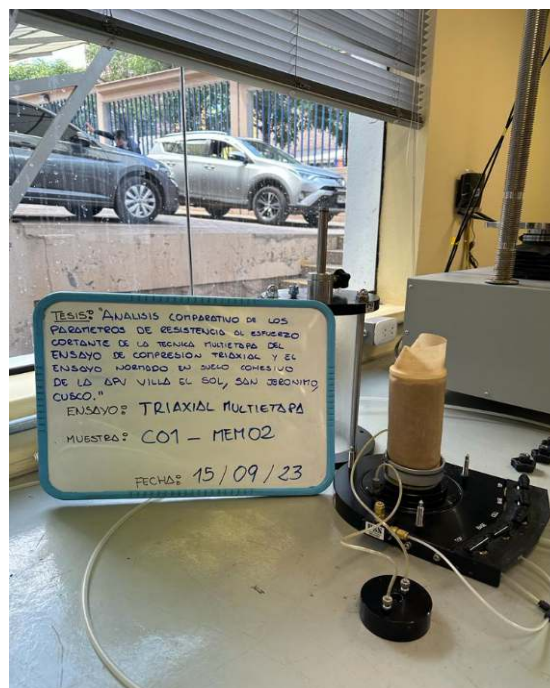 TESIS: "ANALISIS COMPARATIVO DE LOS
PARAMETROS DE RESISTENCIA AL ESFUERZO
CORTANTE DE LA TECNICA MULTIETAPA DEL
ENSAYO DE COMPRESION TRIAXIAL Y EL
ENSAYO NORMADO EN SUELO COHESIVO
DE LA APV VILLA EL SOL, SAN JERONIMO,
CUSCO."
ENSAYO: TRIAXIAL MULTIETAPA
MUESTRA: C01 - MEM02
FECHA: 15/09/23